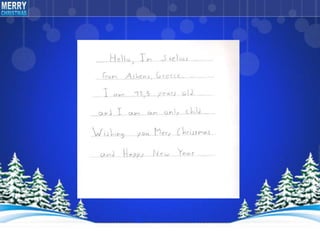 MERRY
CHRISTMAS
Hello, I'm
from Athens, Greece.
I am 12,5 years old
and I am an only child
Wishing you Mery Christmas
and Happy New Year